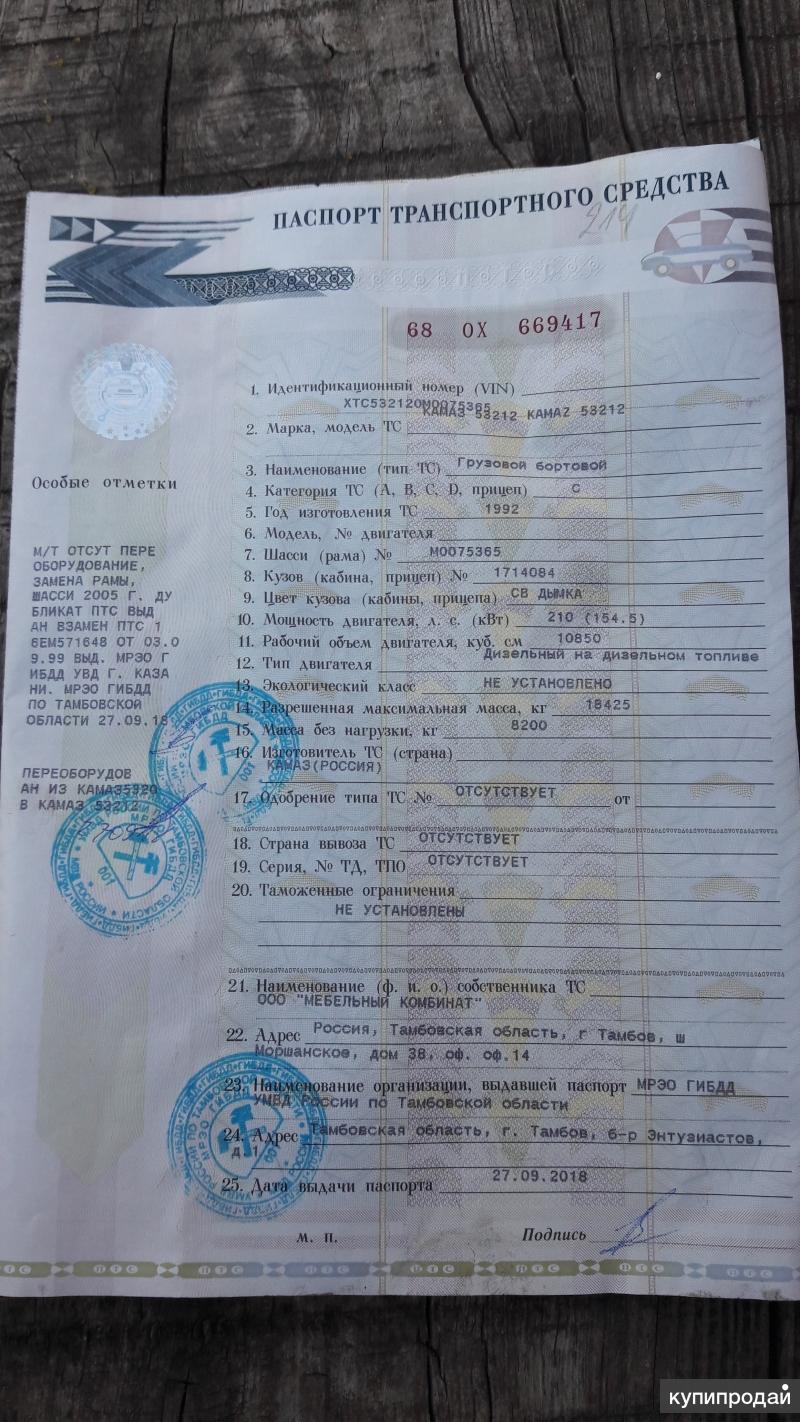 ПАСПОРТ ТРАНСПОРТНОГО СРЕДСТВА
214
68 ОХ 669417
1. Идентификационный номер (VIN)
XTC532120M0075365
2. Марка, модель ТС КАМАЗ 53212 KAMAZ 53212
3. Наименование (тип ТС) Грузовой бортовой
4. Категория ТС (А, В, С, D, прицеп) С
5. Год изготовления ТС 1992
6. Модель, № двигателя
7. Шасси (рама) № М0075365
8. Кузов (кабина, прицеп) № 1714084
9. Цвет кузова (кабины, прицепа) СВ ДЫМКА
10. Мощность двигателя, л. с. (кВт) 210 (154.5)
11. Рабочий объем двигателя, куб. см 10850
12. Тип двигателя Дизельный на дизельном топливе
13. Экологический класс НЕ УСТАНОВЛЕНО
14. Разрешенная максимальная масса, кг 18425
15. Масса без нагрузки, кг 8200
16. Изготовитель ТС (страна)
КАМАЗ(РОССИЯ)
17. Одобрение типа ТС № ОТСУТСТВУЕТ от
18. Страна вывоза ТС ОТСУТСТВУЕТ
19. Серия, № ТД, ТПО ОТСУТСТВУЕТ
20. Таможенные ограничения
НЕ УСТАНОВЛЕНЫ
21. Наименование (ф. и. о.) собственника ТС
ООО "МЕБЕЛЬНЫЙ КОМБИНАТ"
22. Адрес Россия, Тамбовская область, г Тамбов, ш
Моршанское, дом 38, оф. оф.14
23. Наименование организации, выдавшей паспорт МРЭО ГИБДД
УМВД России по Тамбовской области
24. Адрес Тамбовская область, г. Тамбов, б-р Энтузиастов,
д 1
25. Дата выдачи паспорта 27.09.2018
м. п. Подпись
Особые отметки
М/Т ОТСУТ ПЕРЕ
ОБОРУДОВАНИЕ,
ЗАМЕНА РАМЫ,
ШАССИ 2005 Г. ДУ
БЛИКАТ ПТС ВЫД
АН ВЗАМЕН ПТС 1
6ЕМ571648 ОТ 03.0
9.99 ВЫД. МРЭО Г
ИБДД УВД Г. КАЗА
НИ. МРЭО ГИБДД
ПО ТАМБОВСКОЙ
ОБЛАСТИ 27.09.18
ПЕРЕОБОРУДОВ
АН ИЗ КАМАЗ5320
В КАМАЗ 53212
ПТС ПТС ПТС ПТС ПТС ПТС ПТС
купипродай